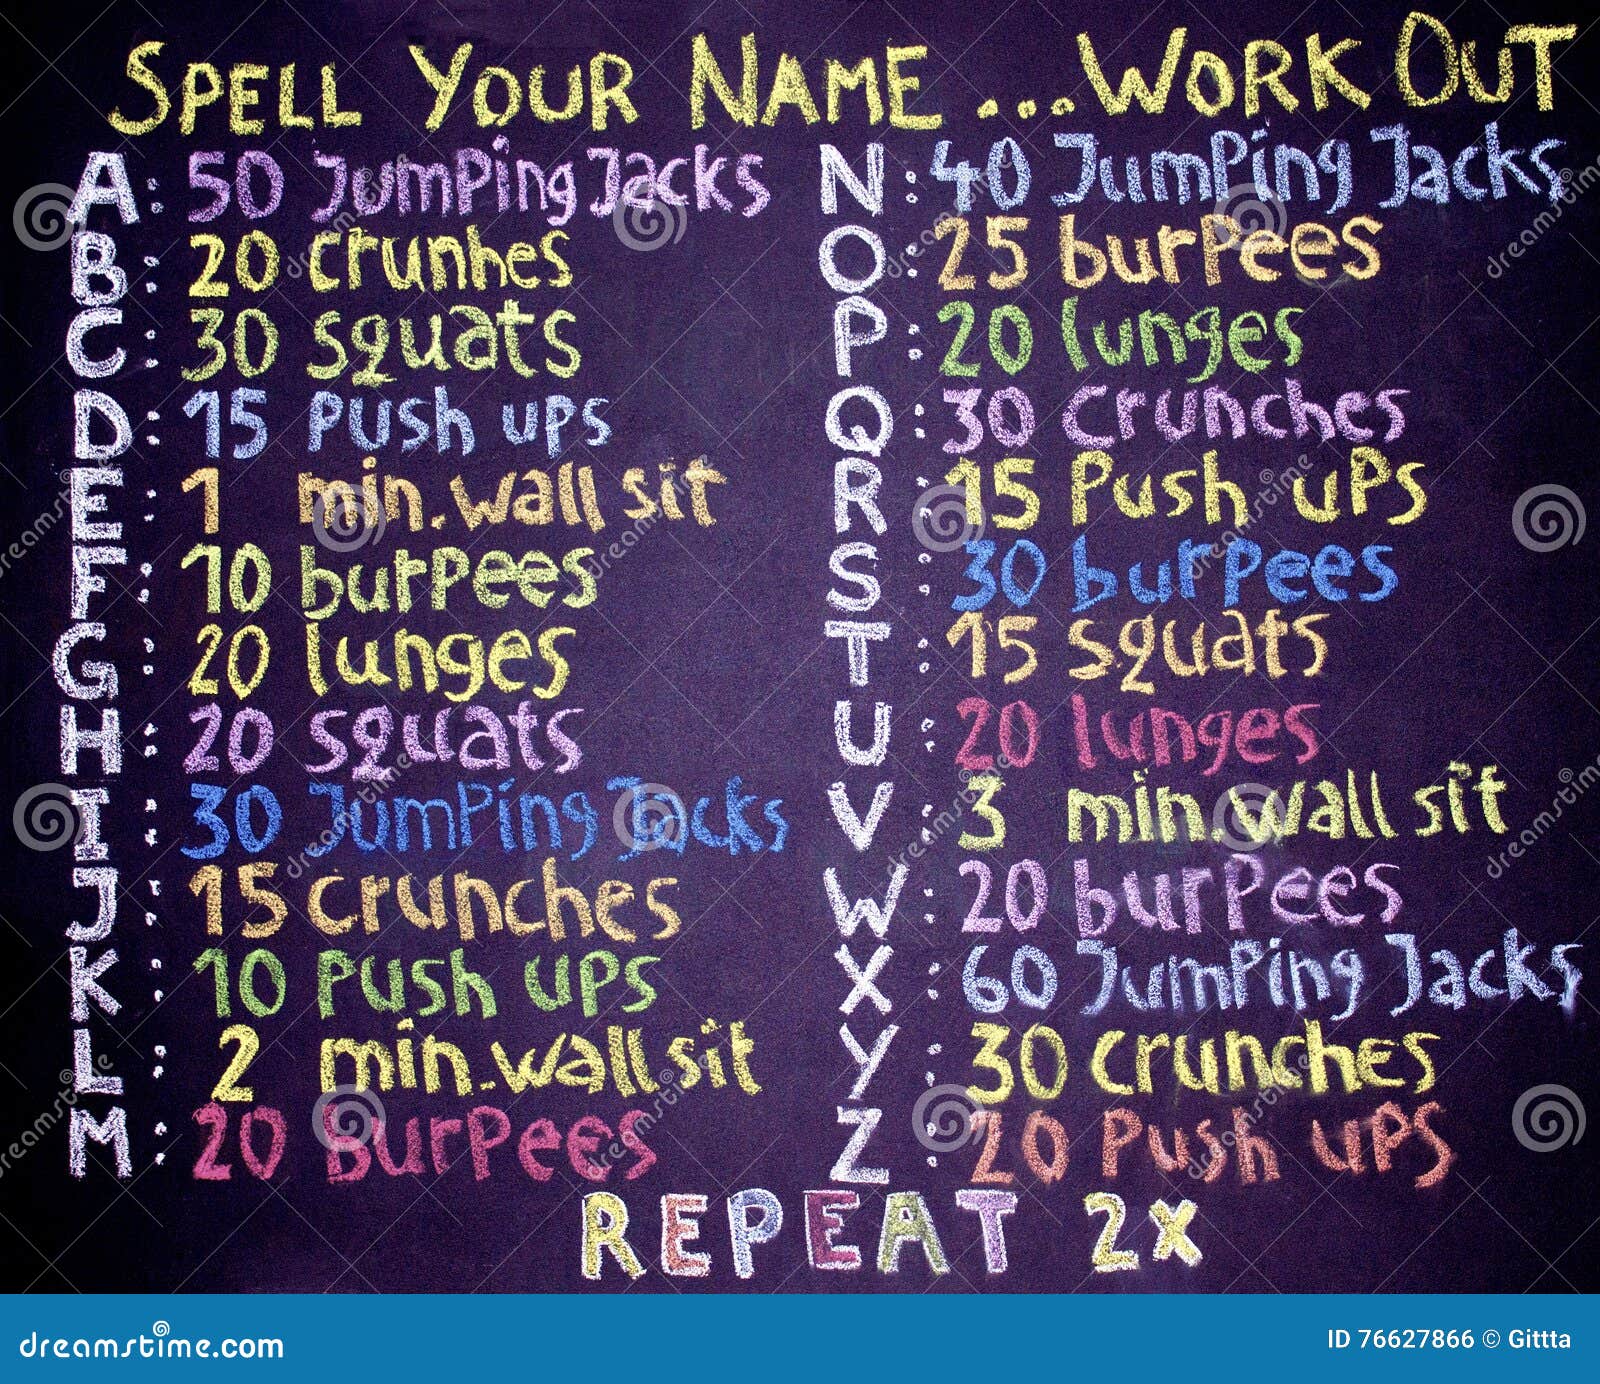 SPELL YOUR NAME ... WORK OUT
A: 50 Jumping Jacks
B: 20 crunhes
C: 30 squats
D: 15 Push ups
E: 1 min. wall sit
F: 10 burpees
G: 20 lunges
H: 20 squats
I: 30 Jumping Jacks
J: 15 crunches
K: 10 Push ups
L: 2 min. wall sit
M: 20 Burpees
N: 40 Jumping Jacks
O: 25 burpees
P: 20 lunges
Q: 30 crunches
R: 15 Push ups
S: 30 burpees
T: 15 squats
U: 20 lunges
V: 3 min. wall sit
W: 20 burpees
X: 60 Jumping Jacks
Y: 30 crunches
Z: 20 Push ups
REPEAT 2x
dreamstime.com
ID 76627866 © Gittta